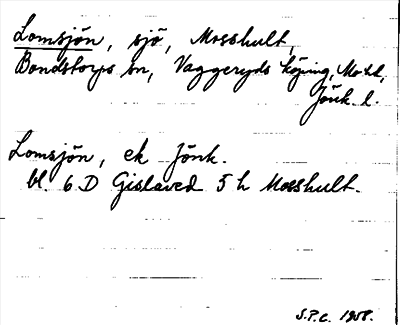 Lomsjön, sjö, Mosshult,
Bondstorps sn, Vaggeryds köping, Mo hd,
Jönk. l.
Lomsjön, ek Jönk.
bl. 6 D Gislaved 5 h Mosshult.
S.P.C. 1958.